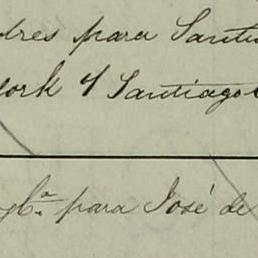 dres para Santi
ork y Santiago
para José de